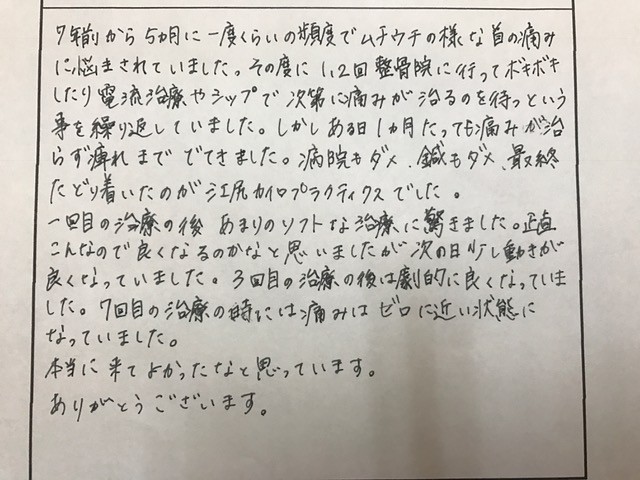 7年前から5ヵ月に一度くらいの頻度でムチウチの様な首の痛み
に悩まされていました。その度に1、2回整骨院に行ってボキボキ
したり電流治療やシップで次第に痛みが治るのを待っという
事を繰り返していました。しかしある日1ヵ月たっても痛みが治
らず痺れまででてきました。病院もダメ、鍼もダメ、最終
たどり着いたのが江尻カイロプラクティクスでした。
一回目の治療の後あまりのソフトな治療に驚きました。正直
こんなので良くなるのかなと思いましたが次の日少し動きが
良くなっていました。3回目の治療の後は劇的に良くなっていま
した。7回目の治療の時には痛みはゼロに近い状態に
なっていました。
本当に来てよかったなと思っています。
ありがとうございます。